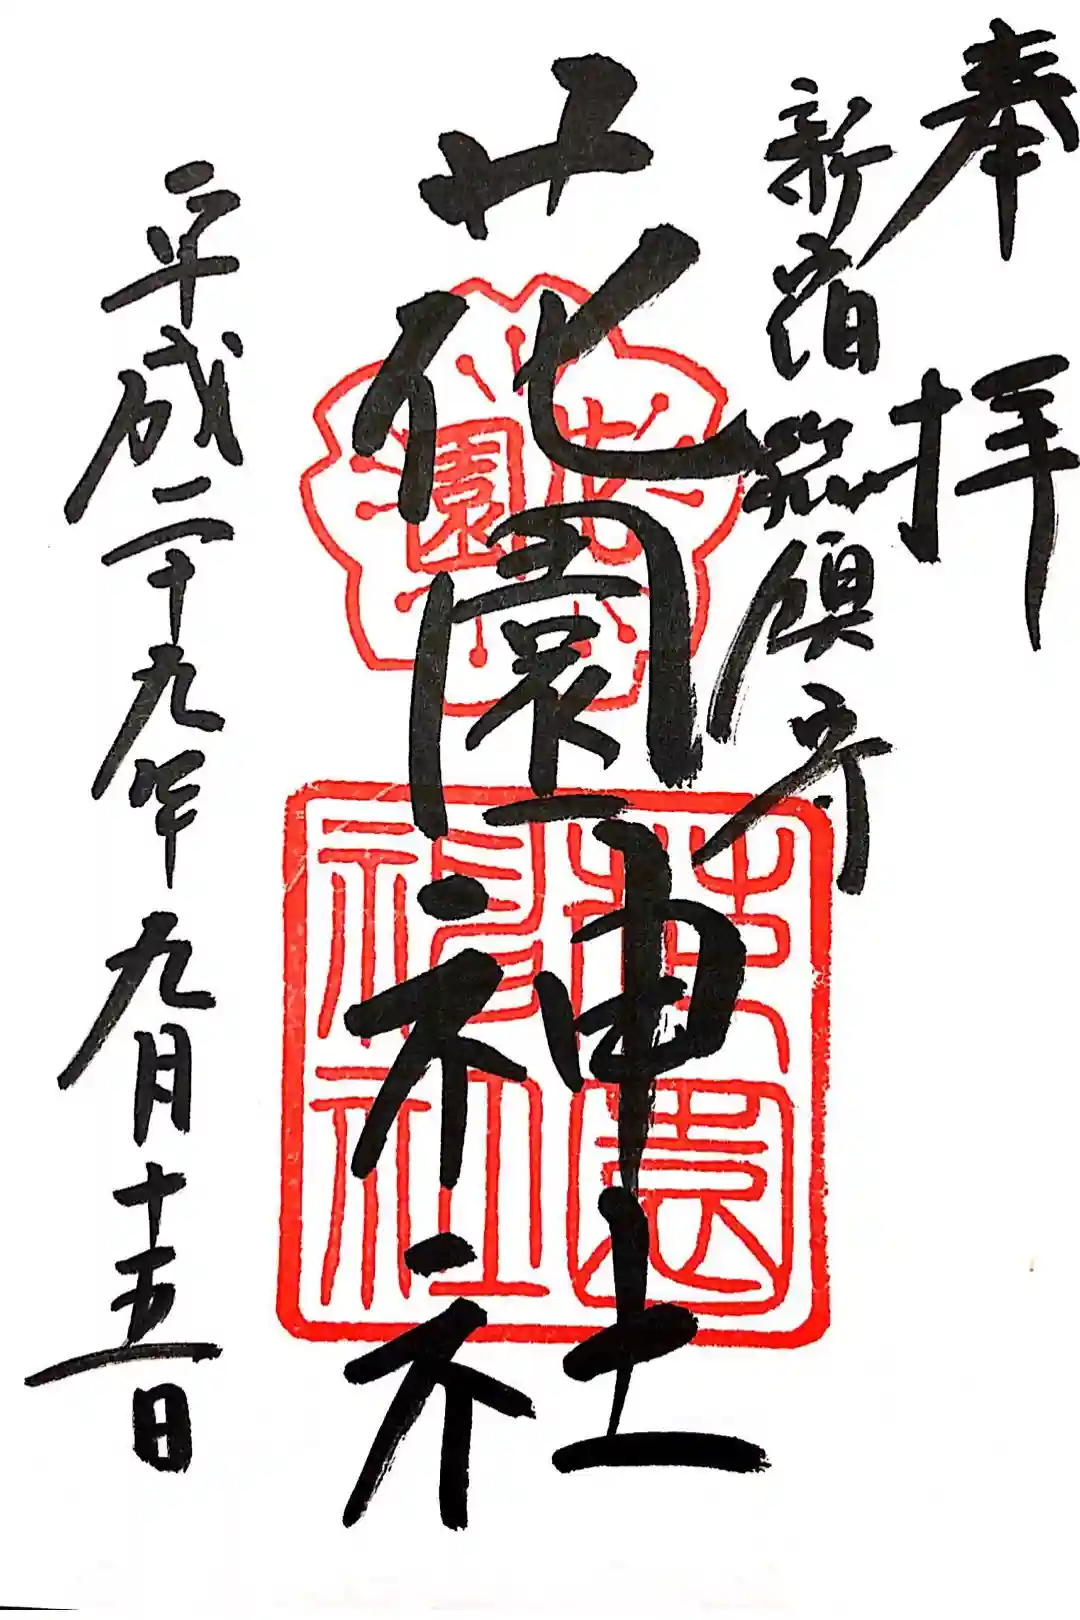 奉拝
新宿総鎮守
花園神社
平成二十九年九月十五日
花園
花園神社